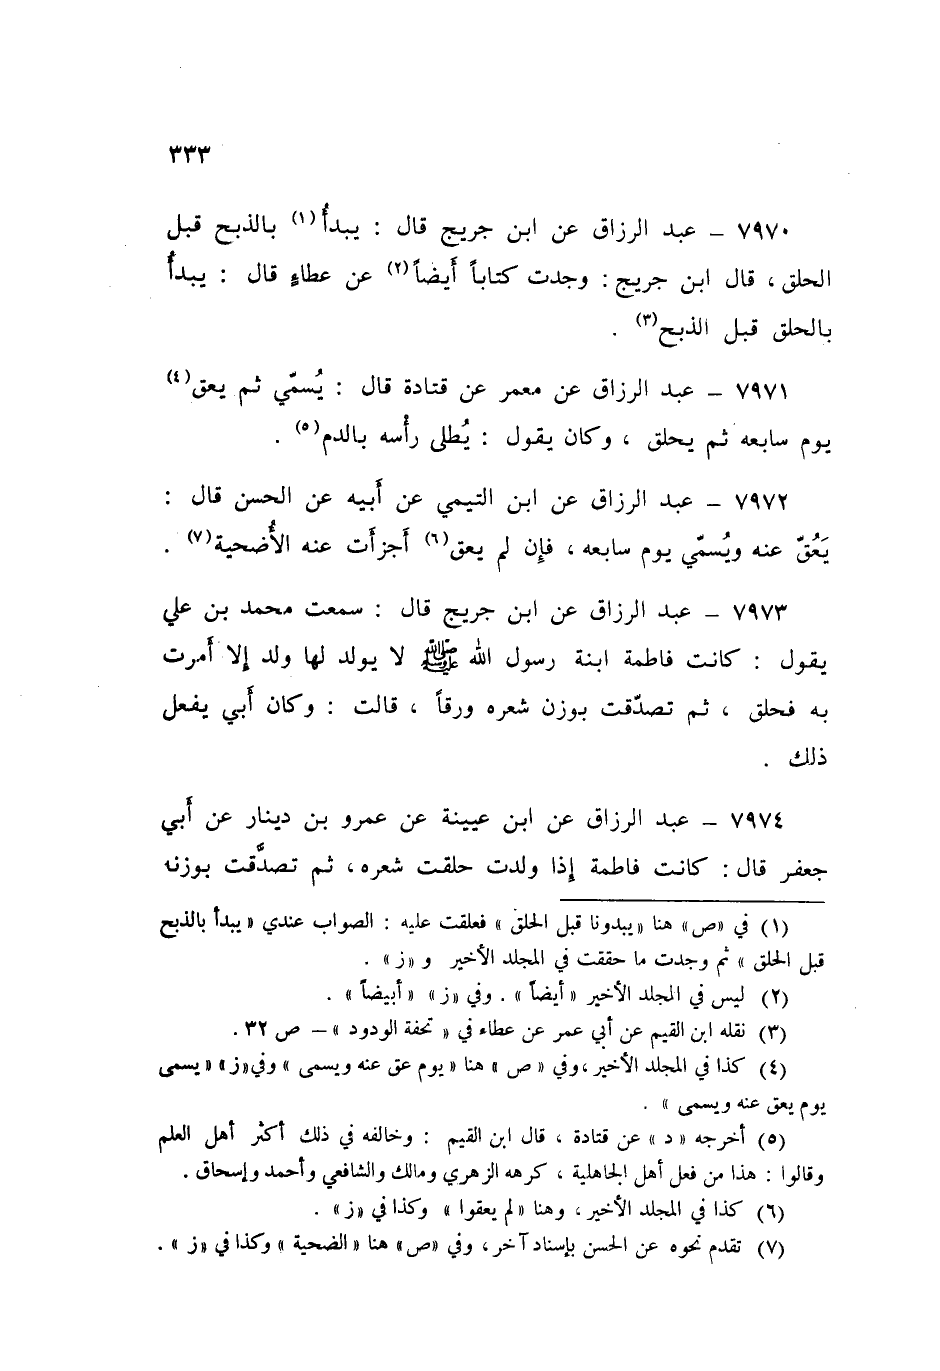 ٣٣٣
٧٩٧٠ – عبد الرزاق عن ابن جريج قال : يبدأ(١) بالذبح قبل
الحلق ، قال ابن جريج : وجدت كتاباً أَيضاً(٢) عن عطاءٍ قال : يبدأُ
بالحلق قبل الذبح(٣) .
٧٩٧١ – عبد الرزاق عن معمر عن قتادة قال : يُسمّي ثم يعق(٤)
يوم سابعه ثم يحلق ، وكان يقول : يُطلى رأْسه بالدم(٥) .
٧٩٧٢ – عبد الرزاق عن ابن التيمي عن أَبيه عن الحسن قال :
يَعُقّ عنه ويُسمّي يوم سابعه ، فإِن لم يعق(٦) أَجزأَت عنه الأُضحية(٧) .
٧٩٧٣ – عبد الرزاق عن ابن جريج قال : سمعت محمد بن علي
يقول : كانت فاطمة ابنة رسول الله ﷺ لا يولد لها ولد إلا أَمرت
به فحلق ، ثم تصدّقت بوزن شعره ورقاً ، قالت : وكان أَبي يفعل
ذلك .
٧٩٧٤ – عبد الرزاق عن ابن عيينة عن عمرو بن دينار عن أَبي
جعفر قال : كانت فاطمة إِذا ولدت حلقت شعره ، ثم تصدَّقت بوزنه
(١) في «ص» هنا «يبدونا قبل الحلق» فعلقت عليه : الصواب عندي « يبدأ بالذبح
قبل الحلق » ثم وجدت ما حققت في المجلد الأخير و «ز» .
(٢) ليس في المجلد الأخير « أيضاً » . وفي «ز» « أبيضاً » .
(٣) نقله ابن القيم عن أبي عمر عن عطاء في « تحفة الودود » – ص ٣٢ .
(٤) كذا في المجلد الأخير ، وفي « ص » هنا « يوم عق عنه ويسمى » وفي «ز» « يسمى
يوم يعق عنه ويسمى » .
(٥) أخرجه « د » عن قتادة ، قال ابن القيم : وخالفه في ذلك أكثر أهل العلم
وقالوا : هذا من فعل أهل الجاهلية ، كرهه الزهري ومالك والشافعي وأحمد وإسحاق .
(٦) كذا في المجلد الأخير ، وهنا « لم يعقوا » وكذا في «ز» .
(٧) تقدم نحوه عن الحسن بإسناد آخر ، وفي «ص» هنا « الضحية » وكذا في «ز » .